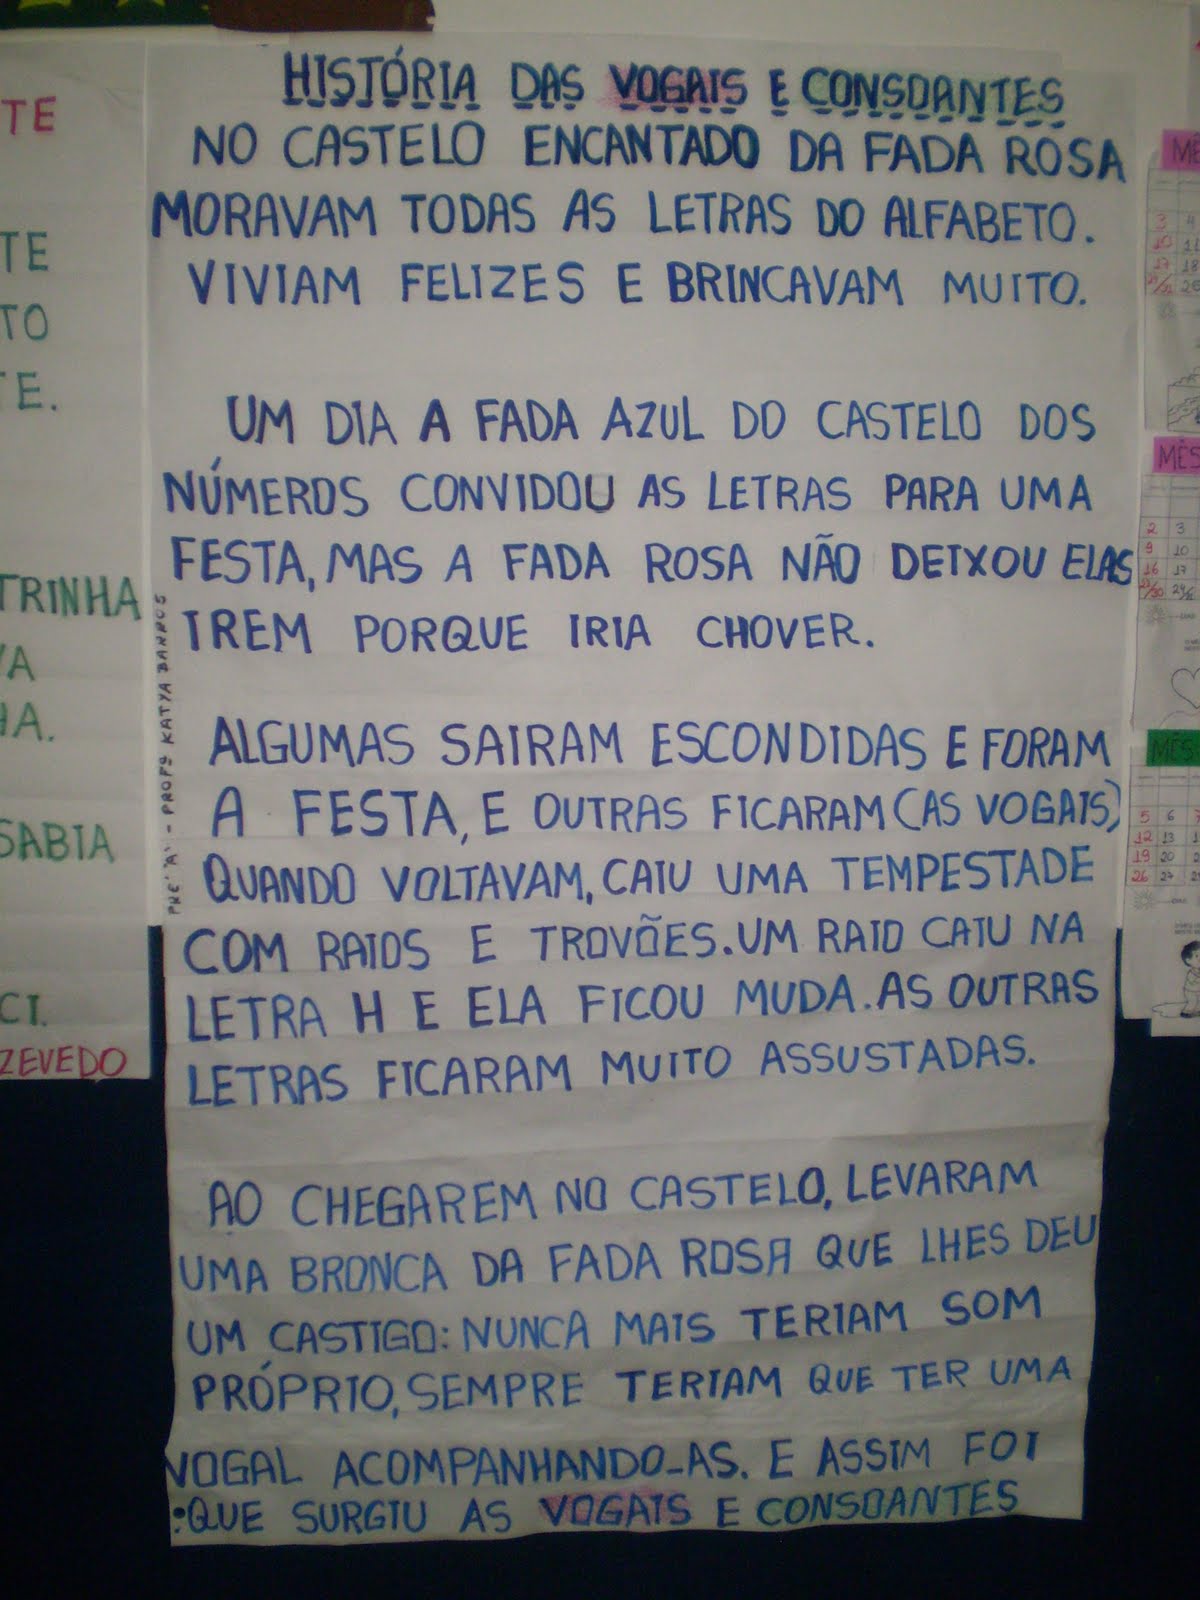 HISTÓRIA DAS VOGAIS E CONSOANTES
NO CASTELO ENCANTADO DA FADA ROSA
MORAVAM TODAS AS LETRAS DO ALFABETO.
VIVIAM FELIZES E BRINCAVAM MUITO.
UM DIA A FADA AZUL DO CASTELO DOS
NÚMEROS CONVIDOU AS LETRAS PARA UMA
FESTA, MAS A FADA ROSA NÃO DEIXOU ELAS
IREM PORQUE IRIA CHOVER.
ALGUMAS SAIRAM ESCONDIDAS E FORAM
A FESTA, E OUTRAS FICARAM (AS VOGAIS)
QUANDO VOLTAVAM, CAIU UMA TEMPESTADE
COM RAIOS E TROVÕES. UM RAIO CAIU NA
LETRA H E ELA FICOU MUDA. AS OUTRAS
LETRAS FICARAM MUITO ASSUSTADAS.
AO CHEGAREM NO CASTELO, LEVARAM
UMA BRONCA DA FADA ROSA QUE LHES DEU
UM CASTIGO: NUNCA MAIS TERIAM SOM
PRÓPRIO, SEMPRE TERIAM QUE TER UMA
VOGAL ACOMPANHANDO-AS. E ASSIM FOI
:QUE SURGIU AS VOGAIS E CONSOANTES
PRÉ 'A' - PROFS KATYA BARROS
TE
TE
TO
TE.
TRINHA
VA
HA.
SABIA
CI.
ZEVEDO
MÊS
3 4
10 11
17 18
MÊS
2 3
9 10
16 17
23/30 24
MÊS
5 6 7
12 13
19 20
26 27